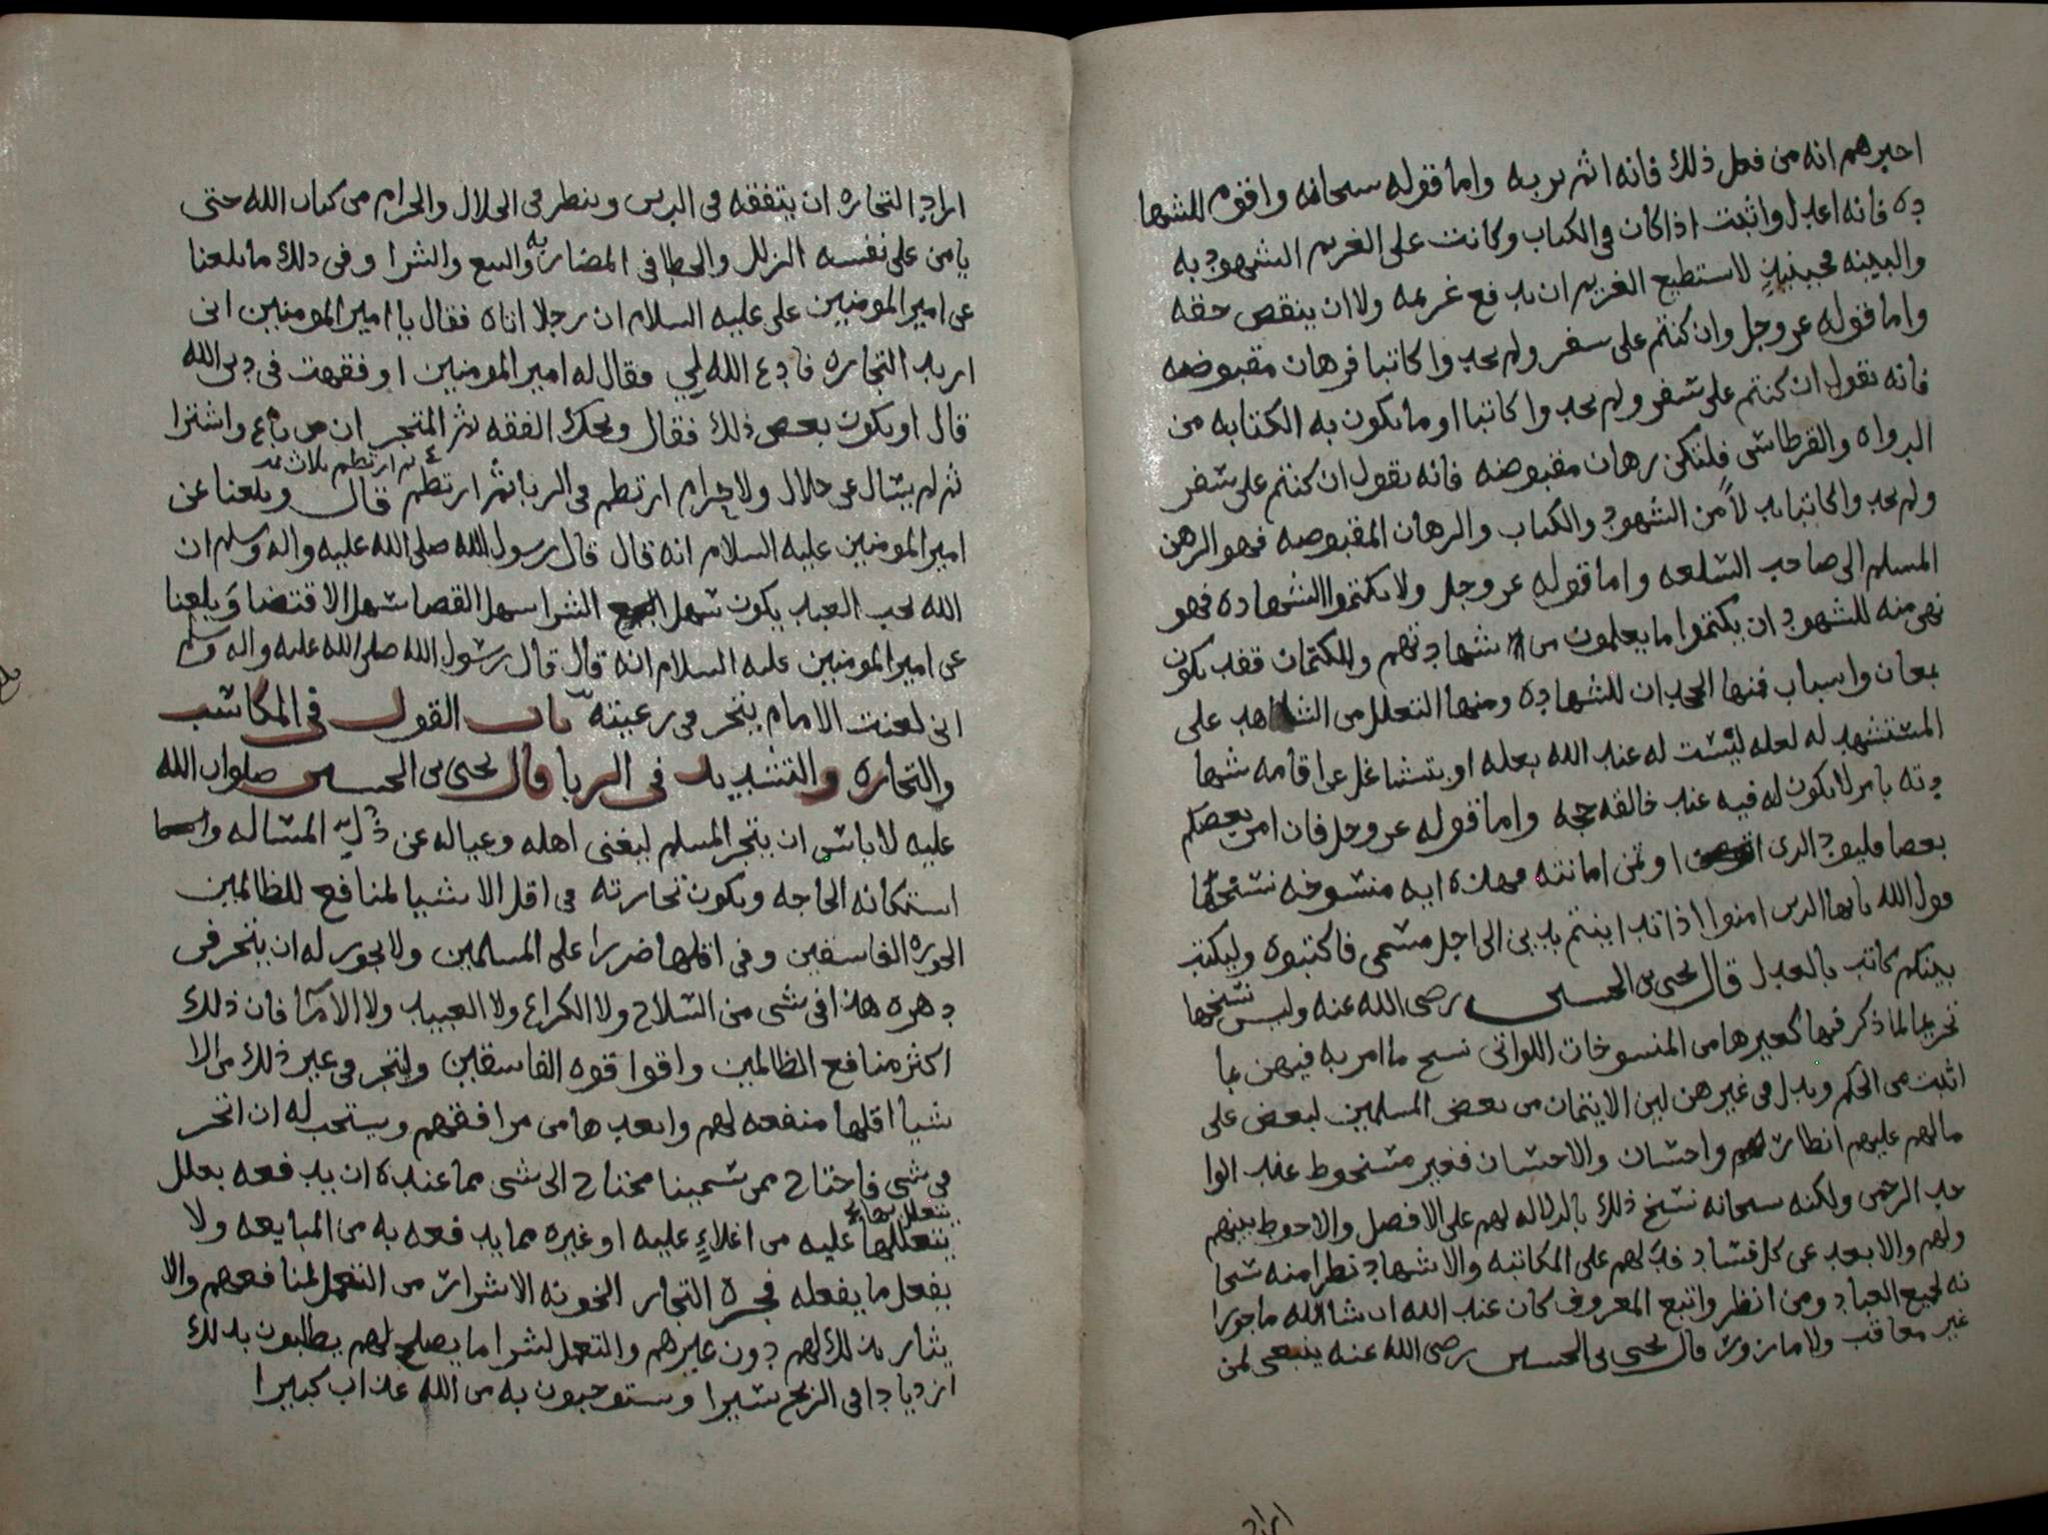 اخبرهم انه من فعل ذلك فانه اثم بربه واما قوله سبحانه واقوم للشها
ده فانه اعدل واثبت اذا كان في الكتاب وكانت على الغريم الشهود به
والبينه لا يستطيع الغريم ان يدفع غريمه ولا ان ينقص حقه
واما قوله عز وجل وان كنتم على سفر ولم تجدوا كاتبا فرهان مقبوضه
فانه يقول ان كنتم على سفر ولم تجدوا كاتبا او ما يكون به الكتابه من
الدواه والقرطاس فلتكن رهان مقبوضه فانه يقول ان كنتم على سفر
ولم تجدوا كاتبا بدلا من الشهود والكتاب والرهان المقبوضه فهو الرهن
المسلم الى صاحب السلعه واما قوله عز وجل ولا تكتموا الشهاده فهو
نهي منه للشهود ان يكتموا ما يعلمون من شهادتهم وللكتمان فقد يكون
بمعان واسباب فمنها الجحدان للشهاده ومنها التعلل من الشاهد على
المستشهد له لعله ليست له عند الله بعله او يتشاغل عن اقامه شها
دته بامر لا يكون له فيه عند خالقه حجه واما قوله عز وجل فان امن بعضكم
بعضا فليود الذي اوتمن امانته فهذه ايه منسوخه نسختها
قول الله يايها الذين امنوا اذا تداينتم بدين الى اجل مسمى فاكتبوه وليكتب
بينكم كاتب بالعدل قال يحيى بن الحسين رضى الله عنه وليس نسخها
تحريما لما ذكر فيها كغيرها من المنسوخات اللواتي نسخ ما امر به فيهن بما
اثبت من الحكم وبدل في غيرهن لين الايتمان من بعض المسلمين لبعض على
مالهم عليهم انظار واحسان والاحسان فغير مسخوط عند الوا
حد الرحمن ولكنه سبحانه نسخ ذلك بالدلاله لهم على الافضل والاحوط بينهم
ولهم والابعد عن كل فساد فدلهم على المكاتبه والاشهاد نظرا منه سبحا
نه لجميع العباد ومن انظر واتبع المعروف كان عند الله ان شا الله ماجورا
غير معاقب ولا مازور قال يحيى بن الحسين رضى الله عنه ينبغي لمن
اراد
اراد التجاره ان يتفقه في الدين وينظر في الحلال والحرام من كتاب الله حتى
يامن على نفسه الزلل والخطا في المضاربه والبيع والشرا وفي ذلك ما بلغنا
عن امير المومنين على عليه السلام ان رجلا اتاه فقال يا امير المومنين انى
اريد التجاره فادع الله لي فقال له امير المومنين او فقهت في دين الله
قال او يكون بعض ذلك فقال ويحك الفقه ثم المتجر ان من باع واشترا
ثم ارتطم ثلاث
ثم لم يسال عن حلال ولا حرام ارتطم في الربا ثم ارتطم قال وبلغنا عن
امير المومنين عليه السلام انه قال قال رسول الله صلى الله عليه واله وسلم ان
الله يحب العبد يكون سهل البيع سهل الشرا سهل القضا سهل الاقتضا وبلغنا
عن امير المومنين عليه السلام انه قال قال رسول الله صلى الله عليه واله وسلم
انى لعنت الامام يتجر في رعيته باب القول في المكاسب
والتجاره والتشديد في الربا قال يحيى بن الحسين صلوات الله
عليه لا باس ان يتجر المسلم ليغنى اهله وعياله عن ذل المساله
استكانه الحاجه وتكون تجارته في اقل الاشيا لمنافع للظالمين
الجوره الفاسقين وفي اقلها ضررا على المسلمين ولا يجوز له ان يتجر في
دهره هذا في شى من السلاح ولا الكراع ولا العبيد ولا الاما فان ذلك
اكثر منافع الظالمين واقوا قوه الفاسقين وليتجر في غير ذلك من الا
شيا اقلها منفعه لهم وابعدها من مرافقهم ويستحب له ان اتجر
في شى فاحتاج ممن سمينا محتاج الى شى مما عنده ان يدفعه بعلل
يتعلل بها
يتعللها عليه من اغلاء عليه او غيره مما يدفعه به من المبايعه ولا
يفعل ما يفعله فجره التجار الخونه الاشرار من التعمل لمنافعهم والا
يثار بذلك لهم دون غيرهم والتعمل لشرا ما يصلح لهم يطلبون بذلك
ازديادا في الربح يسيرا ويستوجبون به من الله عذاب كبيرا